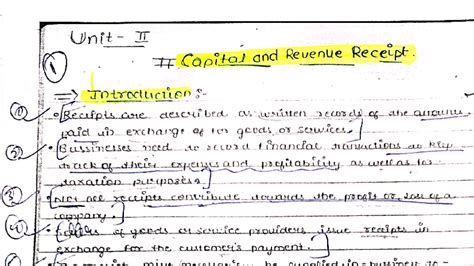 Unit - II
①
# Capital and Revenue Receipt.
⇒ Introduction :-
① • Receipts are described as written records of the amounts
paid in exchange of for goods or services.
② • Businesses need to record financial transactions to keep
track of their expenses and profitability as well as for
taxation purposes.
③ • Not all receipts contribute towards the profit or loss of a
company.
④ • of goods or service providers issue receipts in
exchange for the customer's payment.
receipt must necessarily be supplied in business to-